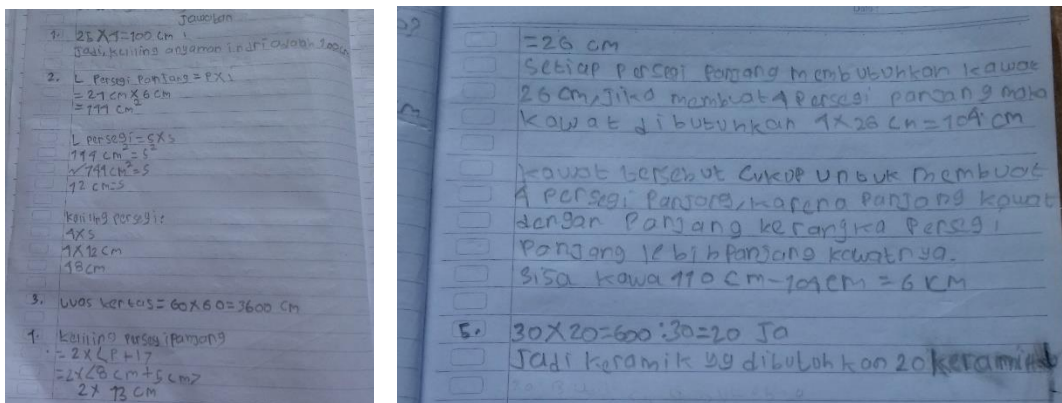 Jawaban
1. 25 X 4=100 cm
Jadi, keliling anyaman indri adalah 100cm
2. L Persegi Panjang = P X L
= 24 cm X 6 cm
= 144 cm²
L persegi = S X S
144 cm² = S²
√144 cm² = S
12 cm = S
keliling persegi:
4 X S
4 X 12 cm
48 cm
3. Luas kertas = 60 X 60 = 3600 cm
4. keliling persegi panjang
= 2 X (P + L)
= 2 X (8 cm + 5 cm)
2 X 13 cm
= 26 cm
Setiap persegi panjang membutuhkan kawat
26 cm, Jika membuat 4 Persegi panjang maka
kawat dibutuhkan 4 X 26 cm = 104 cm
kawat tersebut cukup untuk membuat
4 persegi panjang, karena panjang kawat
dengan Panjang kerangka Persegi
Panjang lebih panjang kawatnya.
Sisa kawa 110 cm - 104 cm = 6 KM
5. 30X20=600:30=20 JO
Jadi keramik yg dibutuhkan 20 keramik